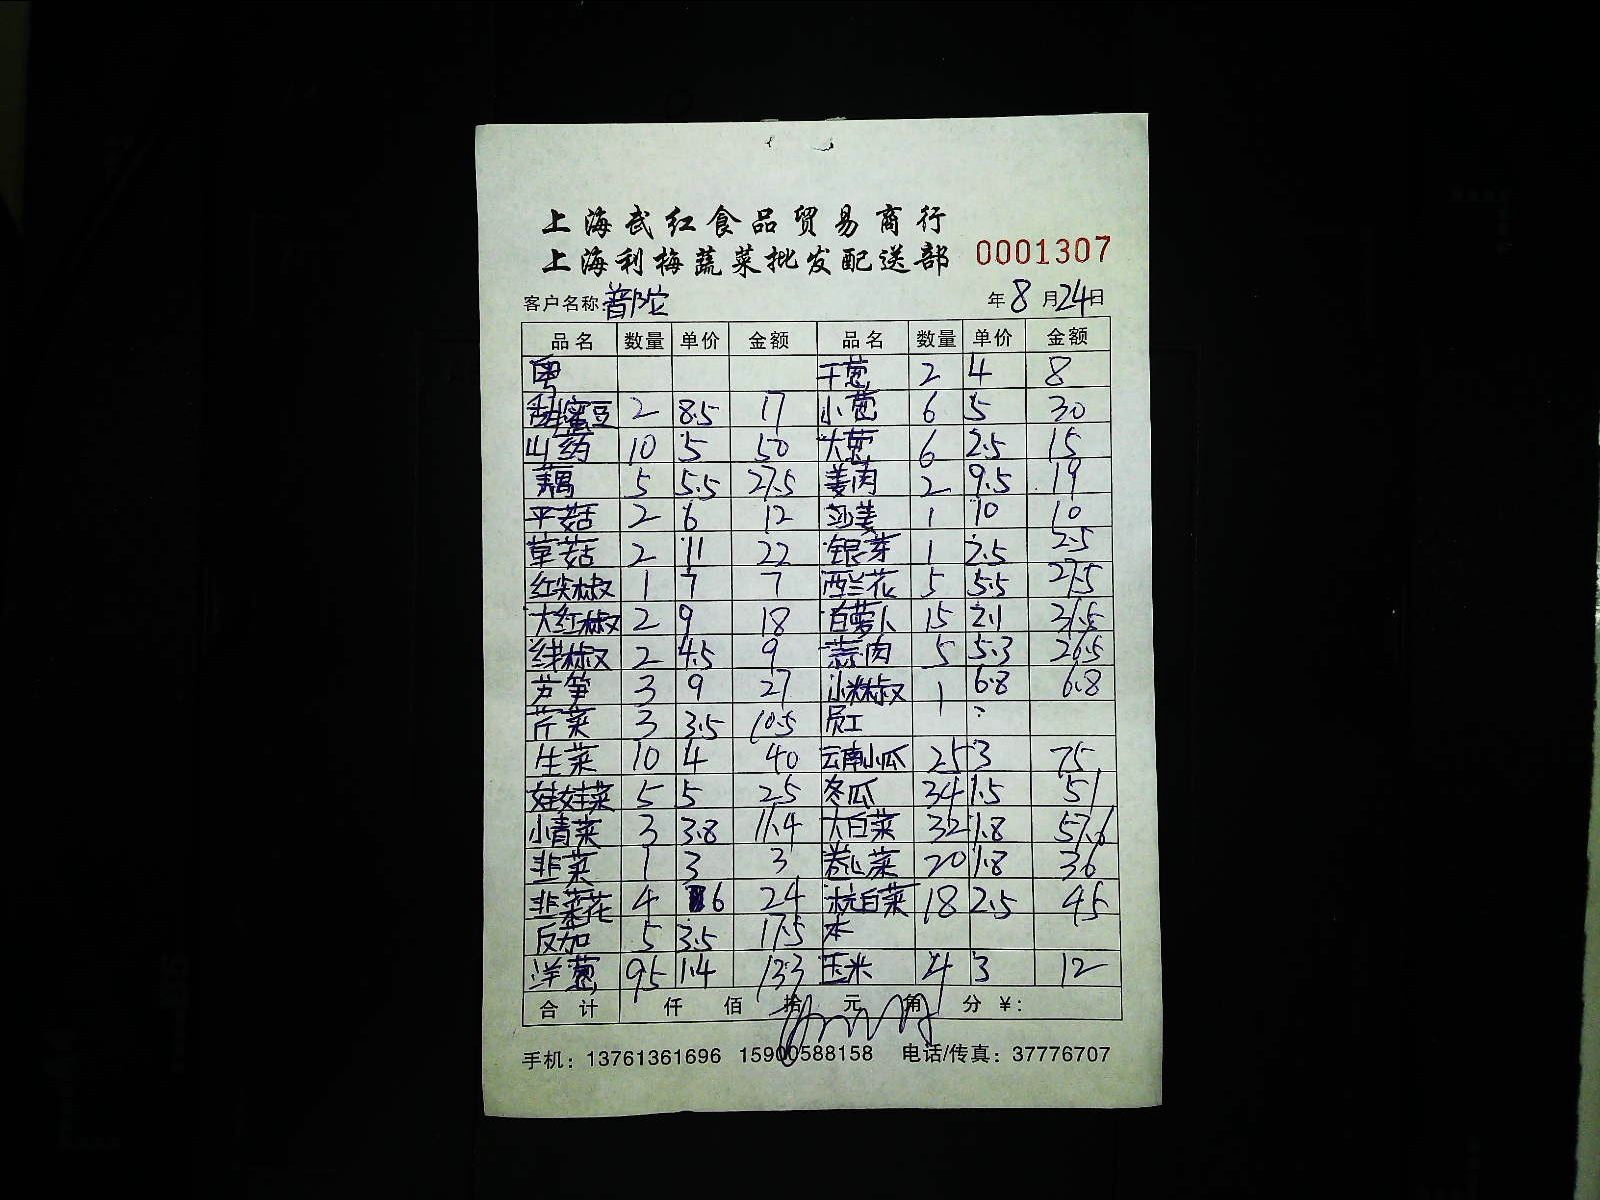 上海武红食品贸易商行
上海利梅蔬菜批发配送部 0001307
客户名称:普陀 年8月24日
品名 数量 单价 金额 品名 数量 单价 金额
粤 干葱 2 4 8
蜜豆 2 8.5 17 小葱 6 5 30
山药 10 5 50 大葱 6 2.5 15
藕 5 5.5 27.5 姜肉 2 9.5 19
平菇 2 6 12 沙姜 1 10 10
草菇 2 11 22 银芽 1 2.5 2.5
红尖椒 1 7 7 西兰花 5 5.5 27.5
大红椒 2 9 18 白萝卜 15 2.1 31.5
线椒 2 4.5 9 蒜肉 5 5.3 26.5
芦笋 3 9 27 小米椒 1 6.8 6.8
芹菜 3 3.5 10.5 员工
生菜 10 4 40 云南小瓜 25 3 75
娃娃菜 5 5 25 冬瓜 34 1.5 51
小青菜 3 3.8 11.4 大白菜 32 1.8 57.6
韭菜 1 3 3 卷心菜 20 1.8 36
韭菜花 4 6 24 杭白菜 18 2.5 45
反加 5 3.5 17.5 本
洋葱 95 1.4 133 玉米 4 3 12
合计 仟 佰 拾 元 角 分 ¥:
手机:13761361696 15900588158 电话/传真:37776707